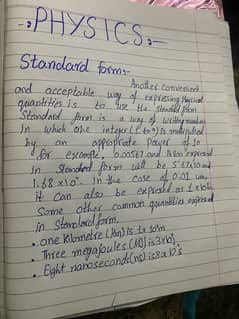 -: PHYSICS:-
Standard form:-
Another convenient
and acceptable way of expressing physical
quantities is to use the standard form
Standard form is a way of writing numbers
In which one integer (1 to 9) is multiplied
by an appropriate power of 10
for example, 0.00567 and
in Standard form will be 5.67x10
1.68 x10. In the case of 0.01 um,
it can also be expressed as 1 x 10
Some other common quantities expressed
in Standard form.
• one kilometre (km) is 1x10m
• Three megajoules (MJ) is 3x10J
• Eight nanoseconds(ns) is 8x10s